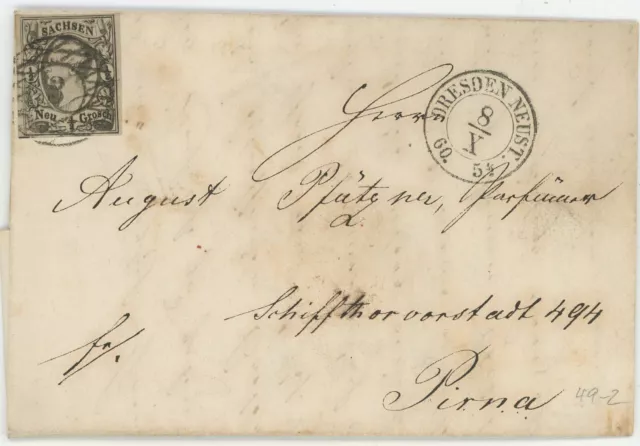 SACHSEN
Neu Grosch
DRESDEN NEUST.
8/X
60. 5½
Herrn
August Pfützner, Parfümeur
Schiffthorvorstadt 494
fr/.
Pirna
49-2